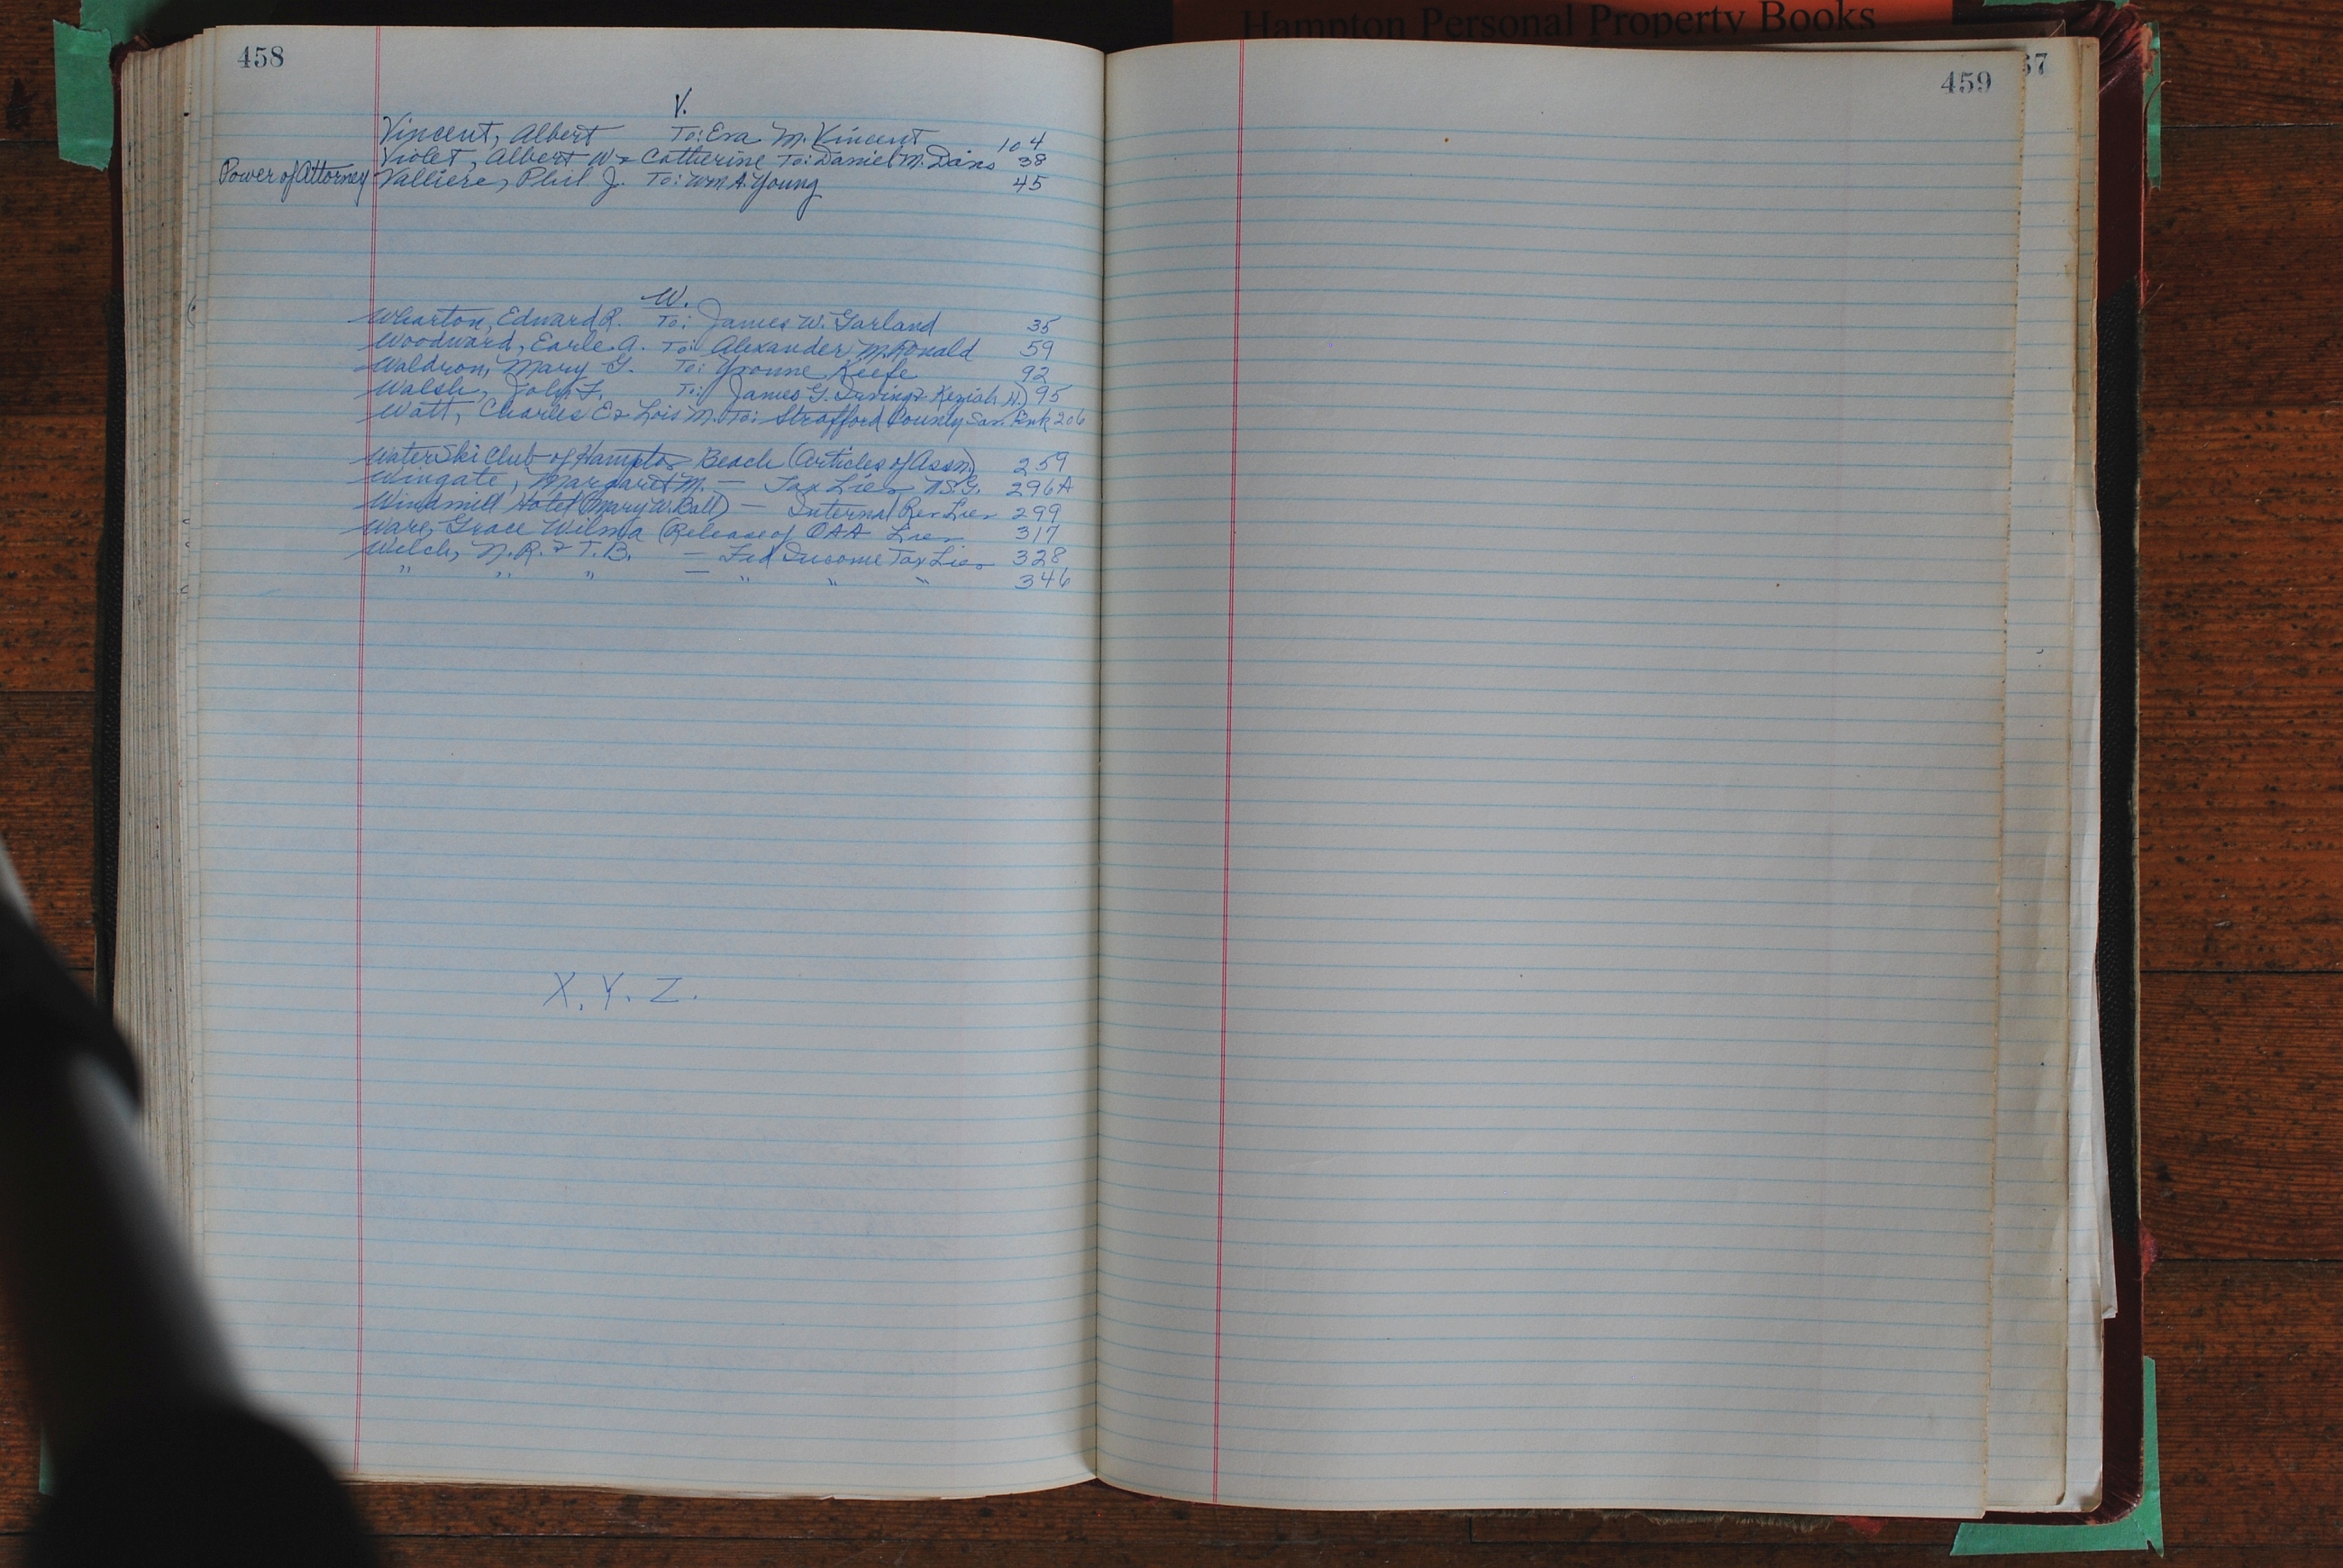 Hampton Personal Property Books
458
V.
Vincent, Albert To: Eva M. Vincent 104
Violet, Albert W & Catherine To: Daniel M. Davis 38
Power of Attorney Valliere, Phil J. To: Wm A. Young 45
W.
Wharton, Edward R. To: James W. Garland 35
Woodward, Earle A. To: Alexander M. Ronald 59
Waldron, Mary G. To: Yvonne Keefe 92
Walsh, John F. To: James G. Irving & Keziah H.) 95
Watt, Charles E & Lois M. To: Strafford County Sav. Bnk 206
Water Ski Club of Hampton Beach (Articles of Assn) 259
Wingate, Margaret M. — Tax Lien 296A
Windmill Hotel (Mary W. Ball) — Internal Rev Lien 299
Ware, Grace Wilma (Release of OAA Lien 317
Welch, N. R. & T. B. — Fed Income Tax Lien 328
" " " — " " " 346
X. Y. Z.
459
57